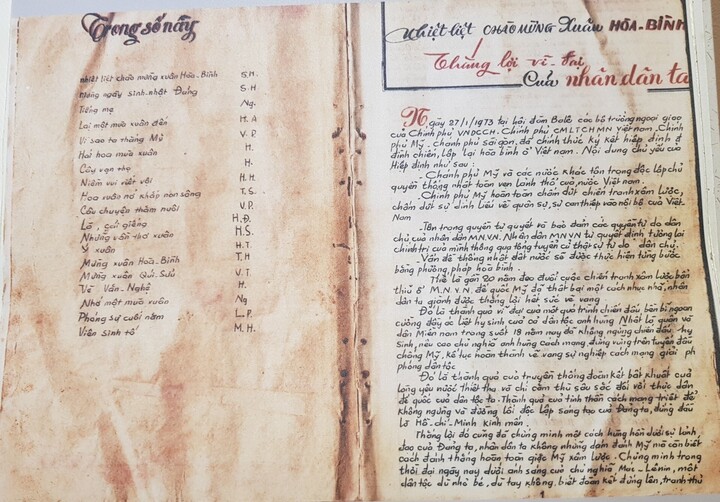 Trong số này
nhiệt liệt chào mừng xuân Hòa-Bình S.H.
Mừng ngày sinh-nhật Đảng S.H
Tiếng mẹ Ng.
Lại một mùa xuân đến H.A
Vì sao ta thắng Mỹ V.P.
Hái hoa mùa xuân H.
Cây vạn thọ H.
Niềm vui viết vội H.H.
Hoa xuân nở khắp non sông T.S.
Câu chuyện thăm nuôi V.P.
Lá, cai giếng H.Đ.
Những vần thơ xuân H.S.
Ý xuân H.T.
Mừng xuân Hòa-Bình T.H
Mừng xuân Quí-Sửu V.T.
Về Văn-Nghệ H.
Nhớ một mùa xuân Ng
Phóng sự cuối năm L.P.
Viên sinh tố M.H.
Nhiệt liệt CHÀO MỪNG Xuân HÒA-BÌNH
Thắng lợi vĩ-đại
Của nhân dân ta
Ngày 27/1/1973 tại hội đàm Balê các bộ trưởng ngoại giao
của Chính phủ VNDCCH. Chính phủ CMLTCHMN Việt nam. Chính
phủ Mỹ. Chánh phủ Sài gòn, đã chính thức ký kết hiệp định đ
đình chiến, lập lại hòa bình ở Việt Nam. Nội dung chủ yếu của
Hiệp định như sau:
_ Chánh phủ Mỹ và các nước khác tôn trọng độc lập chủ
quyền thống nhất toàn vẹn lãnh thổ của nước Việt nam.
_ Chính phủ Mỹ hoàn toàn chấm dứt chiến tranh xâm lược,
chấm dứt sự dính líu về quân sự, sự can thiệp vào nội bộ của Việt
Nam
_ Tôn trọng quyền tự quyết và bảo đảm các quyền tự do dân
chủ của nhân dân MN.VN. Nhân dân MNVN tự quyết định tương lai
chính trị của mình thông qua tổng tuyển cử thật sự tự do dân chủ.
_ Vấn đề thống nhất đất nước sẽ được thực hiện từng bước
bằng phương pháp hòa bình.
Thế là gần 20 năm đeo đuổi cuộc chiến tranh xâm lược bẩn
thỉu ở M.N.V.N. đế quốc Mỹ đã thất bại một cách nhục nhã, nhân
dân ta giành được thắng lợi hết sức vẻ vang
Đó là thành quả vĩ đại của một quá trình chiến đấu bền bỉ ngoan
cường đầy ác liệt hy sinh của cả dân tộc anh hùng. Nhất là quân và
dân Miền nam trong suốt 19 năm nay đã không ngừng chiến đấu hy
Sinh, nêu cao chủ nghĩa anh hùng cách mạng đứng vững trên tuyến đầu
chống Mỹ, kế tục hoàn thành vẻ vang sự nghiệp cách mạng giải ph
phóng dân tộc
Đó là thành quả của truyền thống đoàn kết bất khuất của
lòng yêu nước thiết tha và chí căm thù sâu sắc đối với thực dân
đế quốc của dân tộc ta. Thành quả của tinh thần cách mạng triệt để
không ngừng và đường lối độc lập sáng tạo của Đảng ta, đứng đầu
là Hồ-chí-Minh kính mến.
Thắng lợi đó cũng đã chứng minh một cách hùng hồn dưới sự lãnh
đạo của Đảng ta, nhân dân ta không những dám đánh Mỹ mà còn biết
cách đánh thắng hoàn toàn giặc Mỹ xâm lược. Chứng minh trong
thời đại ngày nay dưới ánh sáng của chủ nghĩa Mác-Lênin, một
dân tộc dù nhỏ bé, dù tay không, biết đoàn kết đứng lên, tranh thủ
1